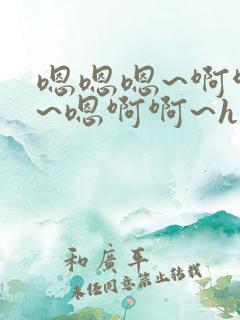 嗯嗯嗯~啊啊
~嗯啊啊~h
和廣平
未经同意禁止转载